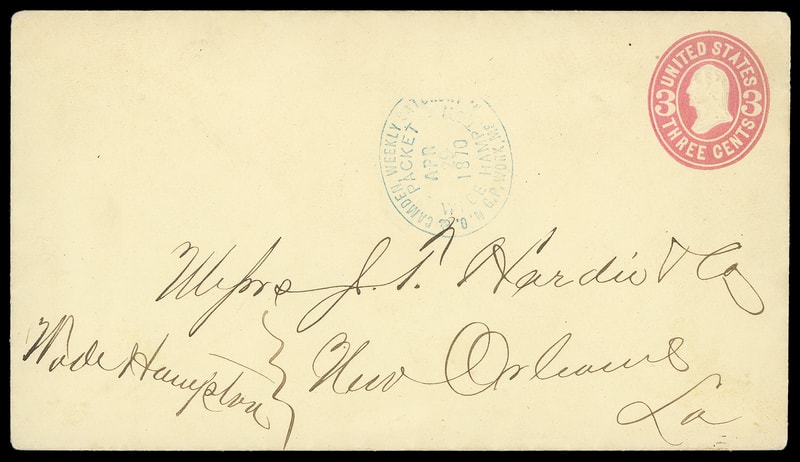 UNITED STATES
3 3
THREE CENTS
CAMDEN WEEKLY
PACKET
APR
1870
Messrs J. T. Hardie & Co
Wade Hampton
New Orleans
La